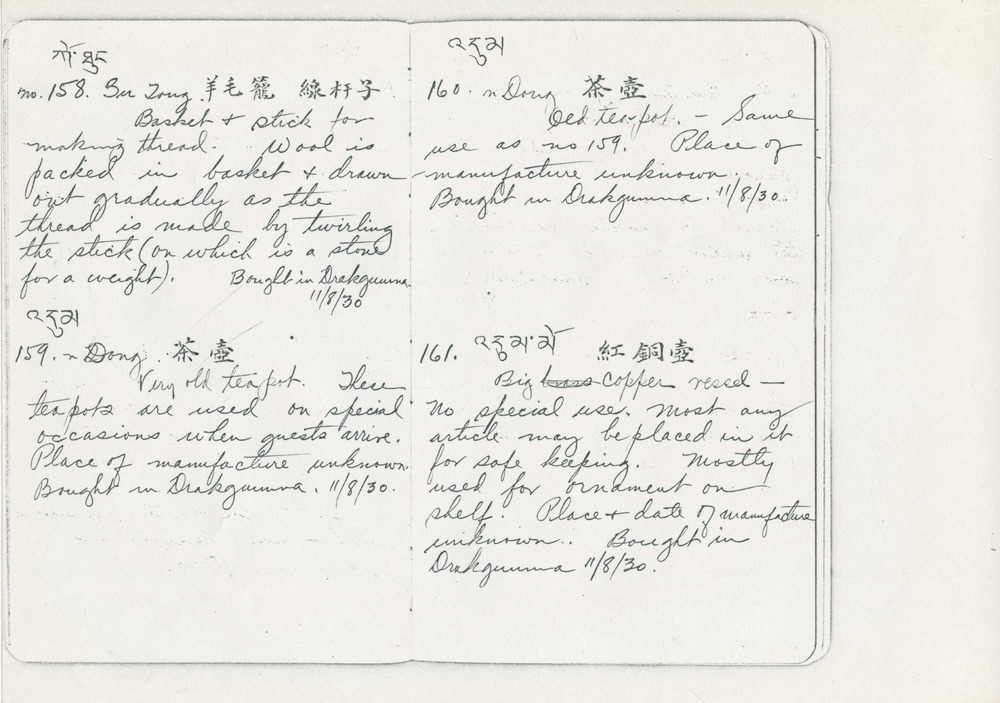 no. 158. Su Zong 羊毛籠 線杆子
Basket + stick for
making thread. Wool is
packed in basket + drawn
out gradually as the
thread is made by twirling
the stick (on which is a stone
for a weight). Bought in Drakgumna.
11/8/30
འདུམ
159. n Dong 茶壺
Very old teapot. These
teapots are used on special
occasions when guests arrive.
Place of manufacture unknown.
Bought in Drakgumna. 11/8/30.
འདུམ
160. n Dong 茶壺
Old teapot. – Same
use as no 159. Place of
manufacture unknown.
Bought in Drakgumna. 11/8/30.
161. འདུམ་མོ 紅銅壺
Big brass copper vessel –
No special use. Most any
article may be placed in it
for safe keeping. Mostly
used for ornament on
shelf. Place + date of manufacture
unknown. Bought in
Drakgumna 11/8/30.